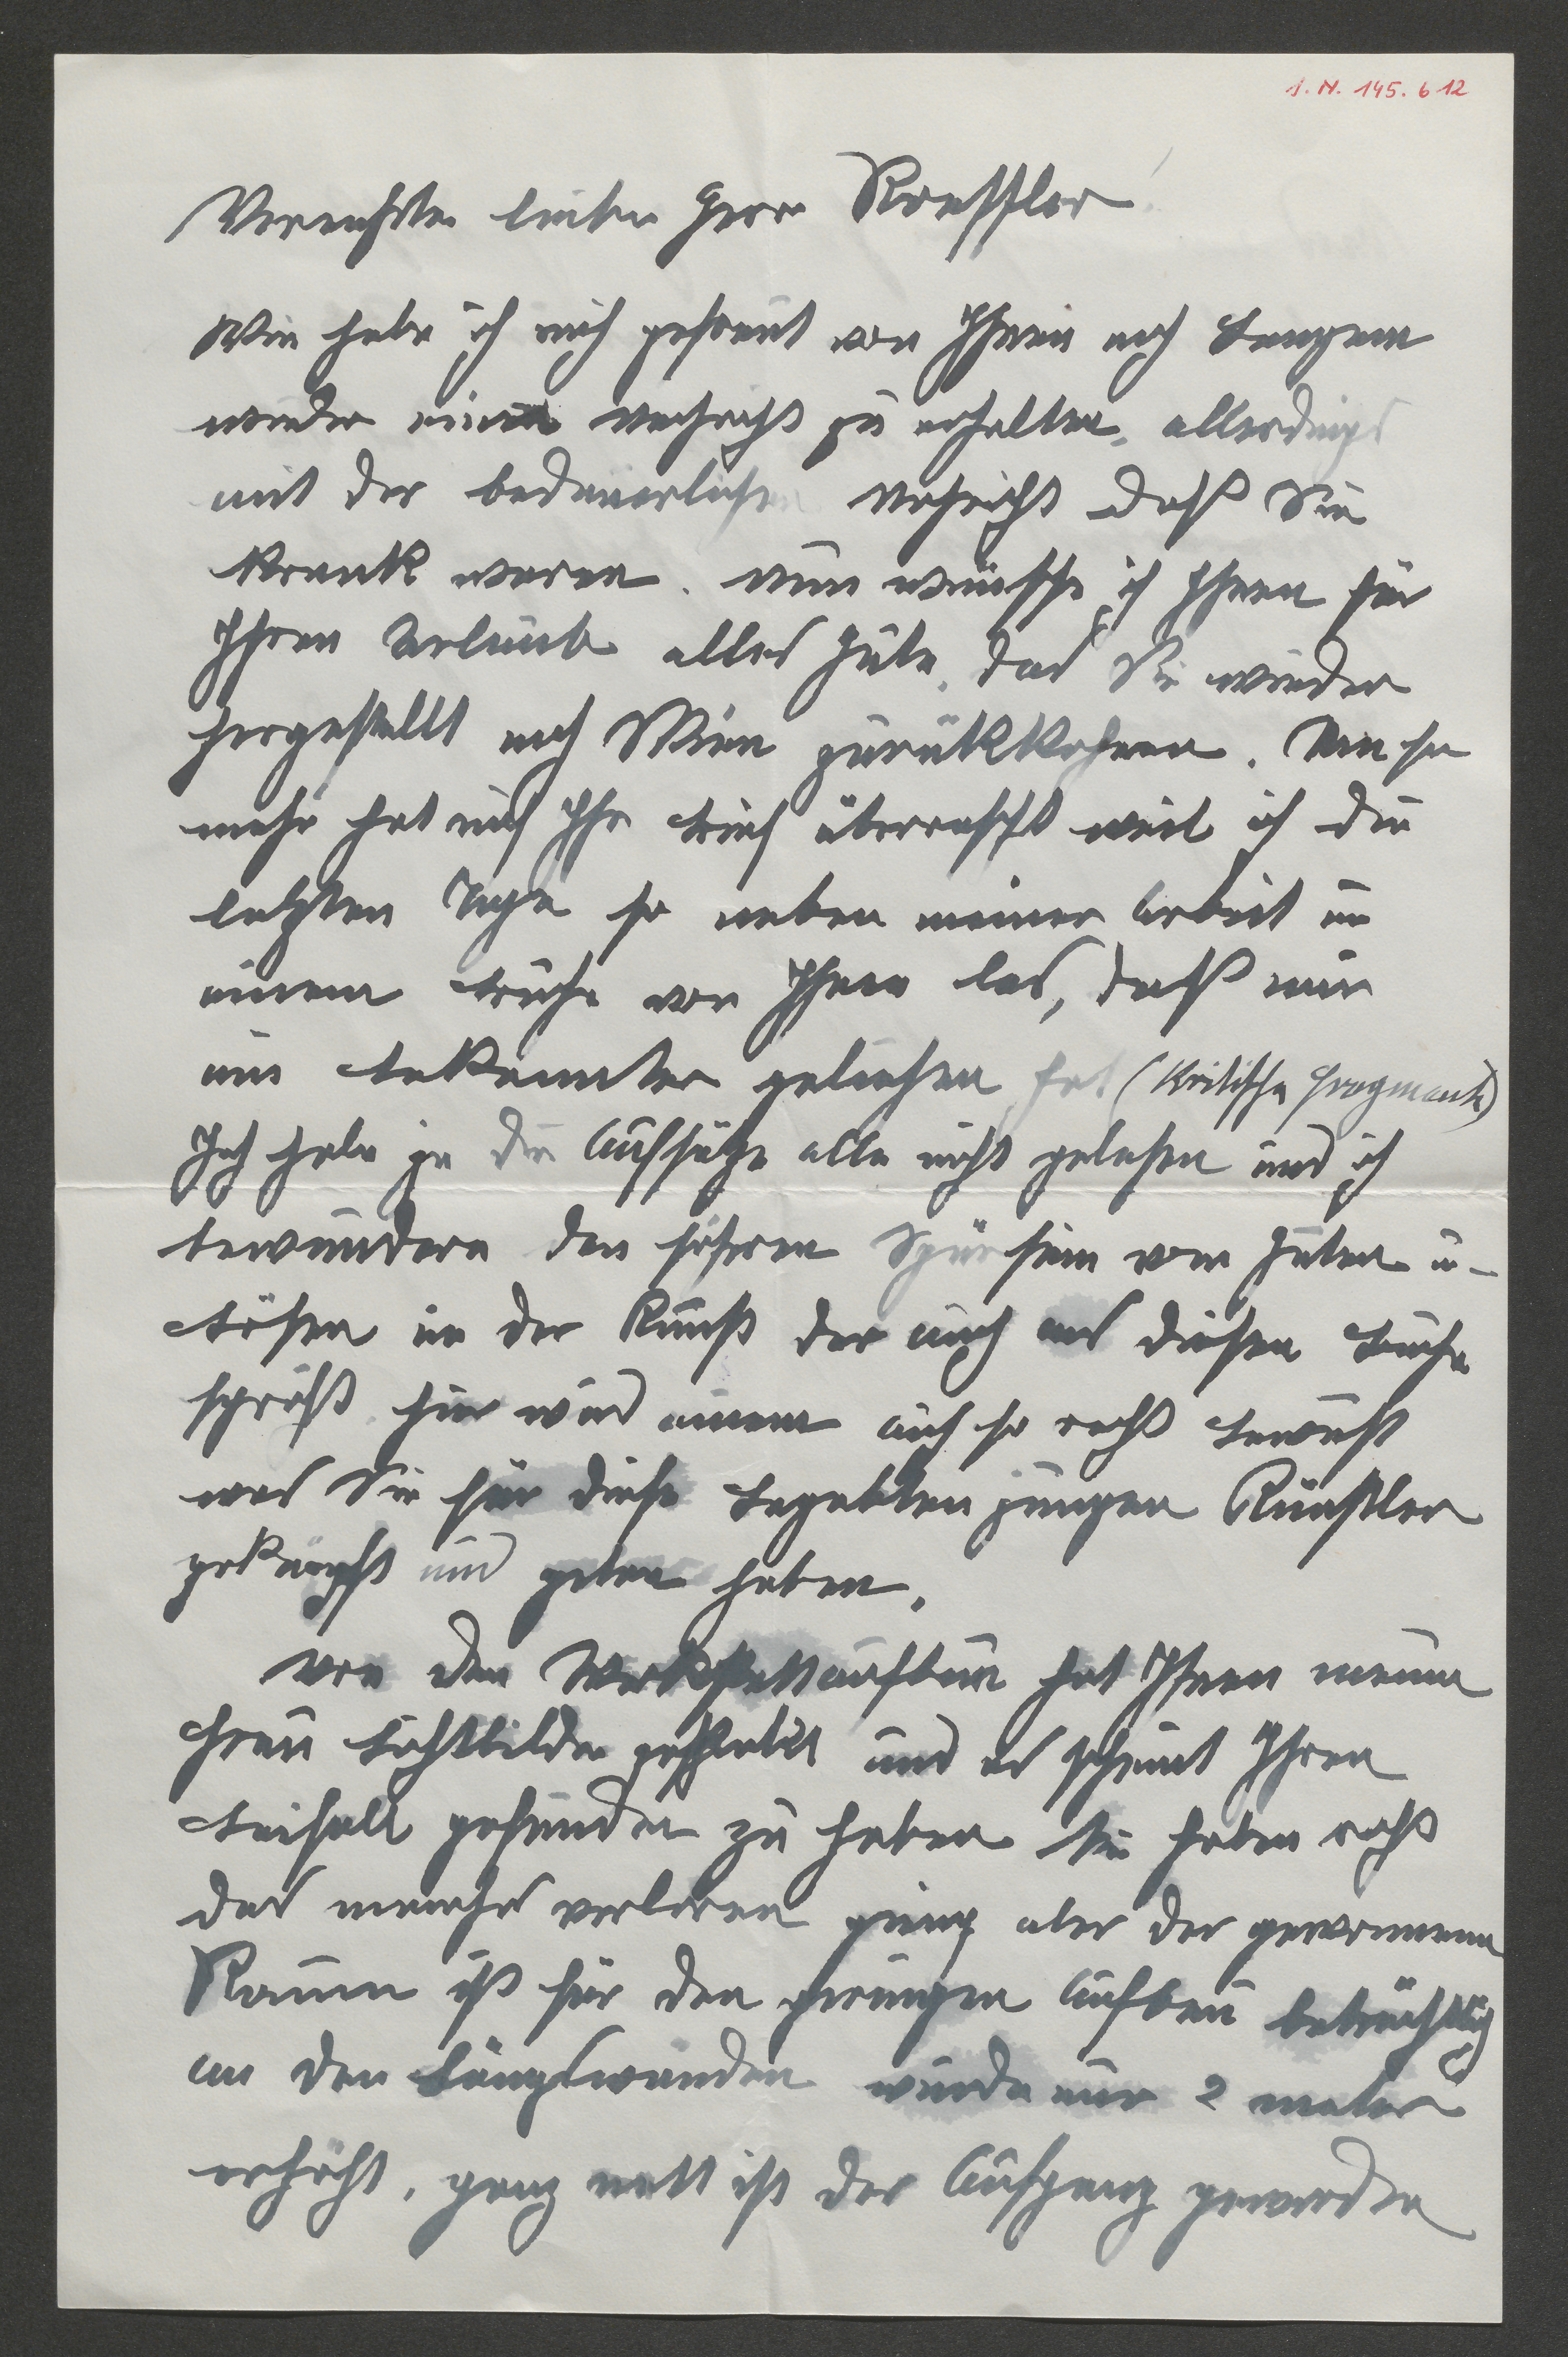 I.N. 145.612
Verehrter lieber Herr Roessler!
Wie habe ich mich gefreut von Ihnen nach langem
wieder eine Nachricht zu erhalten, allerdings
mit der bedauerlichen Nachricht daß Sie
krank waren. Nun wünsche ich Ihnen für
Ihren Urlaub alles Gute, das Sie wieder
hergestellt nach Wien zurükkehren. Um so
mehr hat mich Ihr Brief überrascht weil ich die
letzten Tage so neben meiner Arbeit in
einem Buche von Ihnen las, daß mir
ein Bekannter geliehen hat (Kritische Fragmente)
Ich habe ja die Aufsätze alle nicht gelesen und ich
bewundere den sicheren Spürsinn vom Guten u-
Bösen in der Kunst der auch aus diesen Buche
spricht hier wird einem auch so recht bewußt
was Sie für diese begabten jungen Künstler
gekämpft und getan haben.
Von den Werkstattaufbau hat Ihnen meine
Frau Lichtbilder geschikt und es scheint Ihren
Beifall gefunden zu haben Sie haben recht
das manches verloren ging aber der gewonnene
Raum ist für den geringen Aufbau beträchtlich
an den Längswänden wurde nur 2 meter
erhöht, ganz nett ist der Aufgang geworden